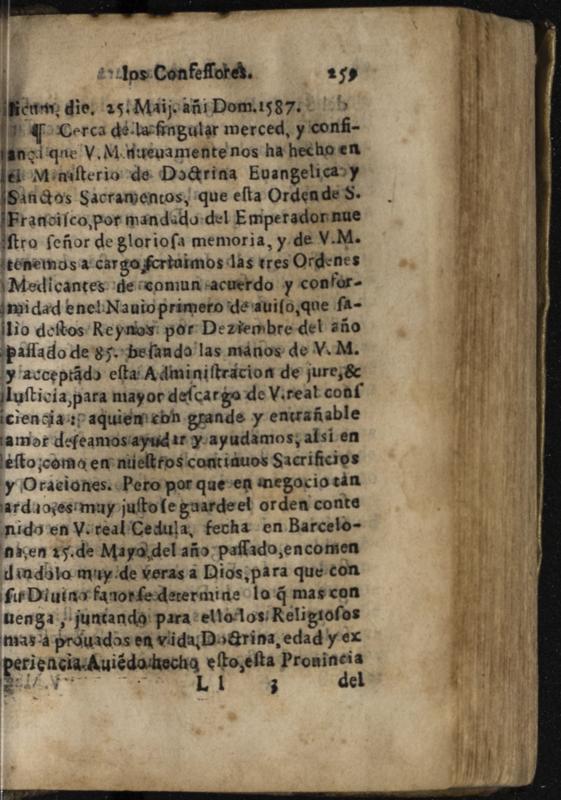 los Confessores. 259
licum. die. 25. Maij. añi Dom. 1587.
¶ Cerca de la singular merced, y confi-
ança que V.M. nueuamente nos ha hecho en
el Ministerio de Doctrina Euangelica y
Sanctos Sacramentos, que esta Orden de S.
Francisco, por mandado del Emperador nue
stro señor de gloriosa memoria, y de V.M.
tenemos a cargo, scriuimos las tres Ordenes
Medicantes de comun acuerdo y confor-
midad en el Nauio primero de auiso, que sa-
lio destos Reynos por Deziembre del año
passado de 85. besando las manos de V. M.
y acceptãdo esta Administracion de jure, &
Iusticia, para mayor descargo de V. real cons
ciencia: aquien con grande y entrañable
amor deseamos ayudar y ayudamos, alsi en
esto, como en nuestros continuos Sacrificios
y Oraciones. Pero por que en negocio tan
arduo, es muy justo se guarde el orden conte
nido en V. real Cedula, fecha en Barcelo-
na, en 25. de Mayo, del año passado, encomen
dandolo muy de veras a Dios, para que con
su Diuino fauor se determine lo q̃ mas con
uenga, juntando para ello los Religiosos
mas a prouados en vida, Doctrina, edad y ex
periencia. Auiẽdo hecho esto, esta Prouincia
L l 3 del